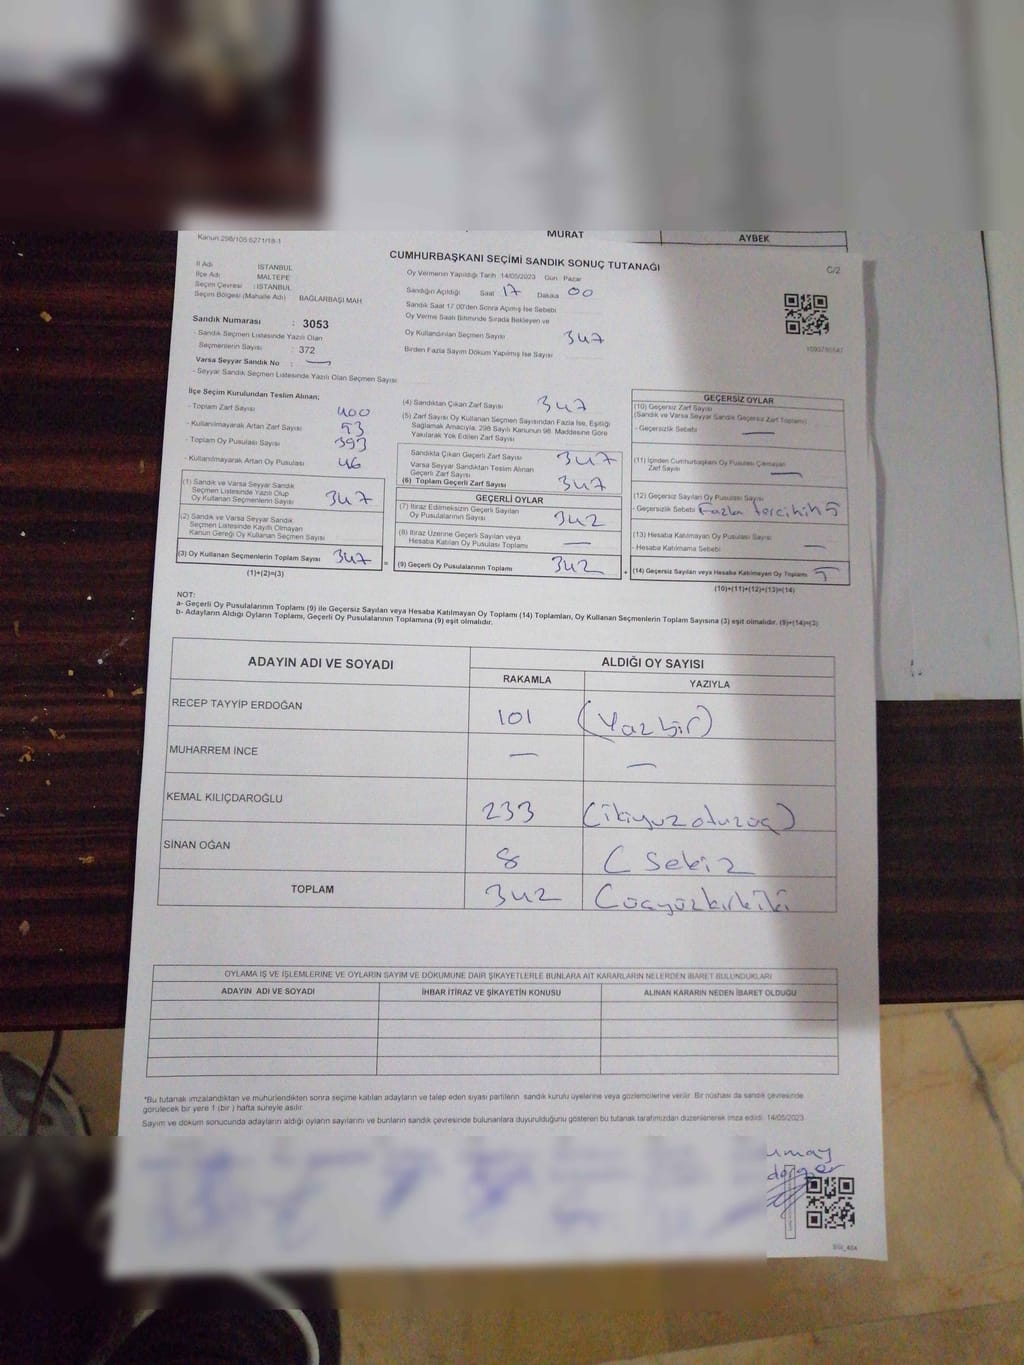 MURAT AYBEK
Kanun 298/105 6271/18-1
CUMHURBAŞKANI SEÇİMİ SANDIK SONUÇ TUTANAĞI
C/2
İl Adı : İSTANBUL
İlçe Adı : MALTEPE
Seçim Çevresi : İSTANBUL
Seçim Bölgesi (Mahalle Adı) : BAĞLARBAŞI MAH
Sandık Numarası : 3053
- Sandık Seçmen Listesinde Yazılı Olan
Seçmenlerin Sayısı : 372
Varsa Seyyar Sandık No : —
- Seyyar Sandık Seçmen Listesinde Yazılı Olan Seçmen Sayısı
Oy Vermenin Yapıldığı Tarih 14/05/2023 Gün Pazar
Sandığın Açıldığı Saat 17 Dakika 00
Sandık Saat 17.00'den Sonra Açılmış İse Sebebi
Oy Verme Saati Bitiminde Sırada Bekleyen ve
Oy Kullandırılan Seçmen Sayısı 347
Birden Fazla Sayım Döküm Yapılmış İse Sayısı
İlçe Seçim Kurulundan Teslim Alınan;
- Toplam Zarf Sayısı 400
- Kullanılmayarak Artan Zarf Sayısı 53
- Toplam Oy Pusulası Sayısı 393
- Kullanılmayarak Artan Oy Pusulası 46
(1) Sandık ve Varsa Seyyar Sandık
Seçmen Listesinde Yazılı Olup
Oy Kullanan Seçmenlerin Sayısı 347
(2) Sandık ve Varsa Seyyar Sandık
Seçmen Listesinde Kayıtlı Olmayan
Kanun Gereği Oy Kullanan Seçmen Sayısı
(3) Oy Kullanan Seçmenlerin Toplam Sayısı 347
(1)+(2)=(3)
=
(4) Sandıktan Çıkan Zarf Sayısı 347
(5) Zarf Sayısı Oy Kullanan Seçmen Sayısından Fazla İse, Eşitliği
Sağlamak Amacıyla, 298 Sayılı Kanunun 98. Maddesine Göre
Yakılarak Yok Edilen Zarf Sayısı
Sandıkta Çıkan Geçerli Zarf Sayısı 347
Varsa Seyyar Sandıktan Teslim Alınan
Geçerli Zarf Sayısı
(6) Toplam Geçerli Zarf Sayısı 347
GEÇERLİ OYLAR
(7) İtiraz Edilmeksizin Geçerli Sayılan
Oy Pusulalarının Sayısı 342
(8) İtiraz Üzerine Geçerli Sayılan veya
Hesaba Katılan Oy Pusulası Toplamı —
(9) Geçerli Oy Pusulalarının Toplamı 342
+
GEÇERSİZ OYLAR
(10) Geçersiz Zarf Sayısı
(Sandık ve Varsa Seyyar Sandık Geçersiz Zarf Toplamı)
- Geçersizlik Sebebi —
(11) İçinden Cumhurbaşkanı Oy Pusulası Çıkmayan
Zarf Sayısı —
(12) Geçersiz Sayılan Oy Pusulası Sayısı
- Geçersizlik Sebebi Fazla tercihin 5
(13) Hesaba Katılmayan Oy Pusulası Sayısı
- Hesaba Katılmama Sebebi —
(14) Geçersiz Sayılan veya Hesaba Katılmayan Oy Toplamı 5
(10)+(11)+(12)+(13)=(14)
NOT:
a- Geçerli Oy Pusulalarının Toplamı (9) ile Geçersiz Sayılan veya Hesaba Katılmayan Oy Toplamı (14) Toplamları, Oy Kullanan Seçmenlerin Toplam Sayısına (3) eşit olmalıdır. (9)+(14)=(3)
b- Adayların Aldığı Oyların Toplamı, Geçerli Oy Pusulalarının Toplamına (9) eşit olmalıdır.
ADAYIN ADI VE SOYADI ALDIĞI OY SAYISI
RAKAMLA YAZIYLA
RECEP TAYYİP ERDOĞAN 101 (Yüz bir)
MUHARREM İNCE — —
KEMAL KILIÇDAROĞLU 233 (ikiyüz otuzüç)
SİNAN OĞAN 8 (Sekiz
TOPLAM 342 (üçyüzkırkiki
OYLAMA İŞ VE İŞLEMLERİNE VE OYLARIN SAYIM VE DÖKÜMÜNE DAİR ŞİKAYETLERLE BUNLARA AİT KARARLARIN NELERDEN İBARET BULUNDUKLARI
ADAYIN ADI VE SOYADI İHBAR İTİRAZ VE ŞİKAYETİN KONUSU ALINAN KARARIN NEDEN İBARET OLDUĞU
*Bu tutanak imzalandıktan ve mühürlendikten sonra seçime katılan adayların ve talep eden siyasi partilerin sandık kurulu üyelerine veya gözlemcilerine verilir. Bir nüshası da sandık çevresinde
görülecek bir yere 1 (bir ) hafta süreyle asılır.
Sayım ve döküm sonucunda adayların aldığı oyların sayılarını ve bunların sandık çevresinde bulunanlara duyurulduğunu gösteren bu tutanak tarafımızdan düzenlenerek imza edildi. 14/05/2023